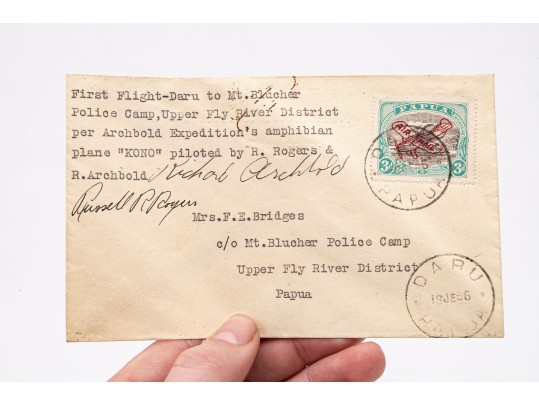 First Flight-Daru to Mt.Blucher
Police Camp,Upper Fly River District
per Archbold Expedition's amphibian
plane "KONO" piloted by R. Rogers &
R.Archbold.
Richard Archbold
Russell R Rogers
Mrs.F.E.Bridges
c/o Mt.Blucher Police Camp
Upper Fly River District
Papua
PAPUA
AIR MAIL
3d 3d
PAPUA
DARU
PAPUA